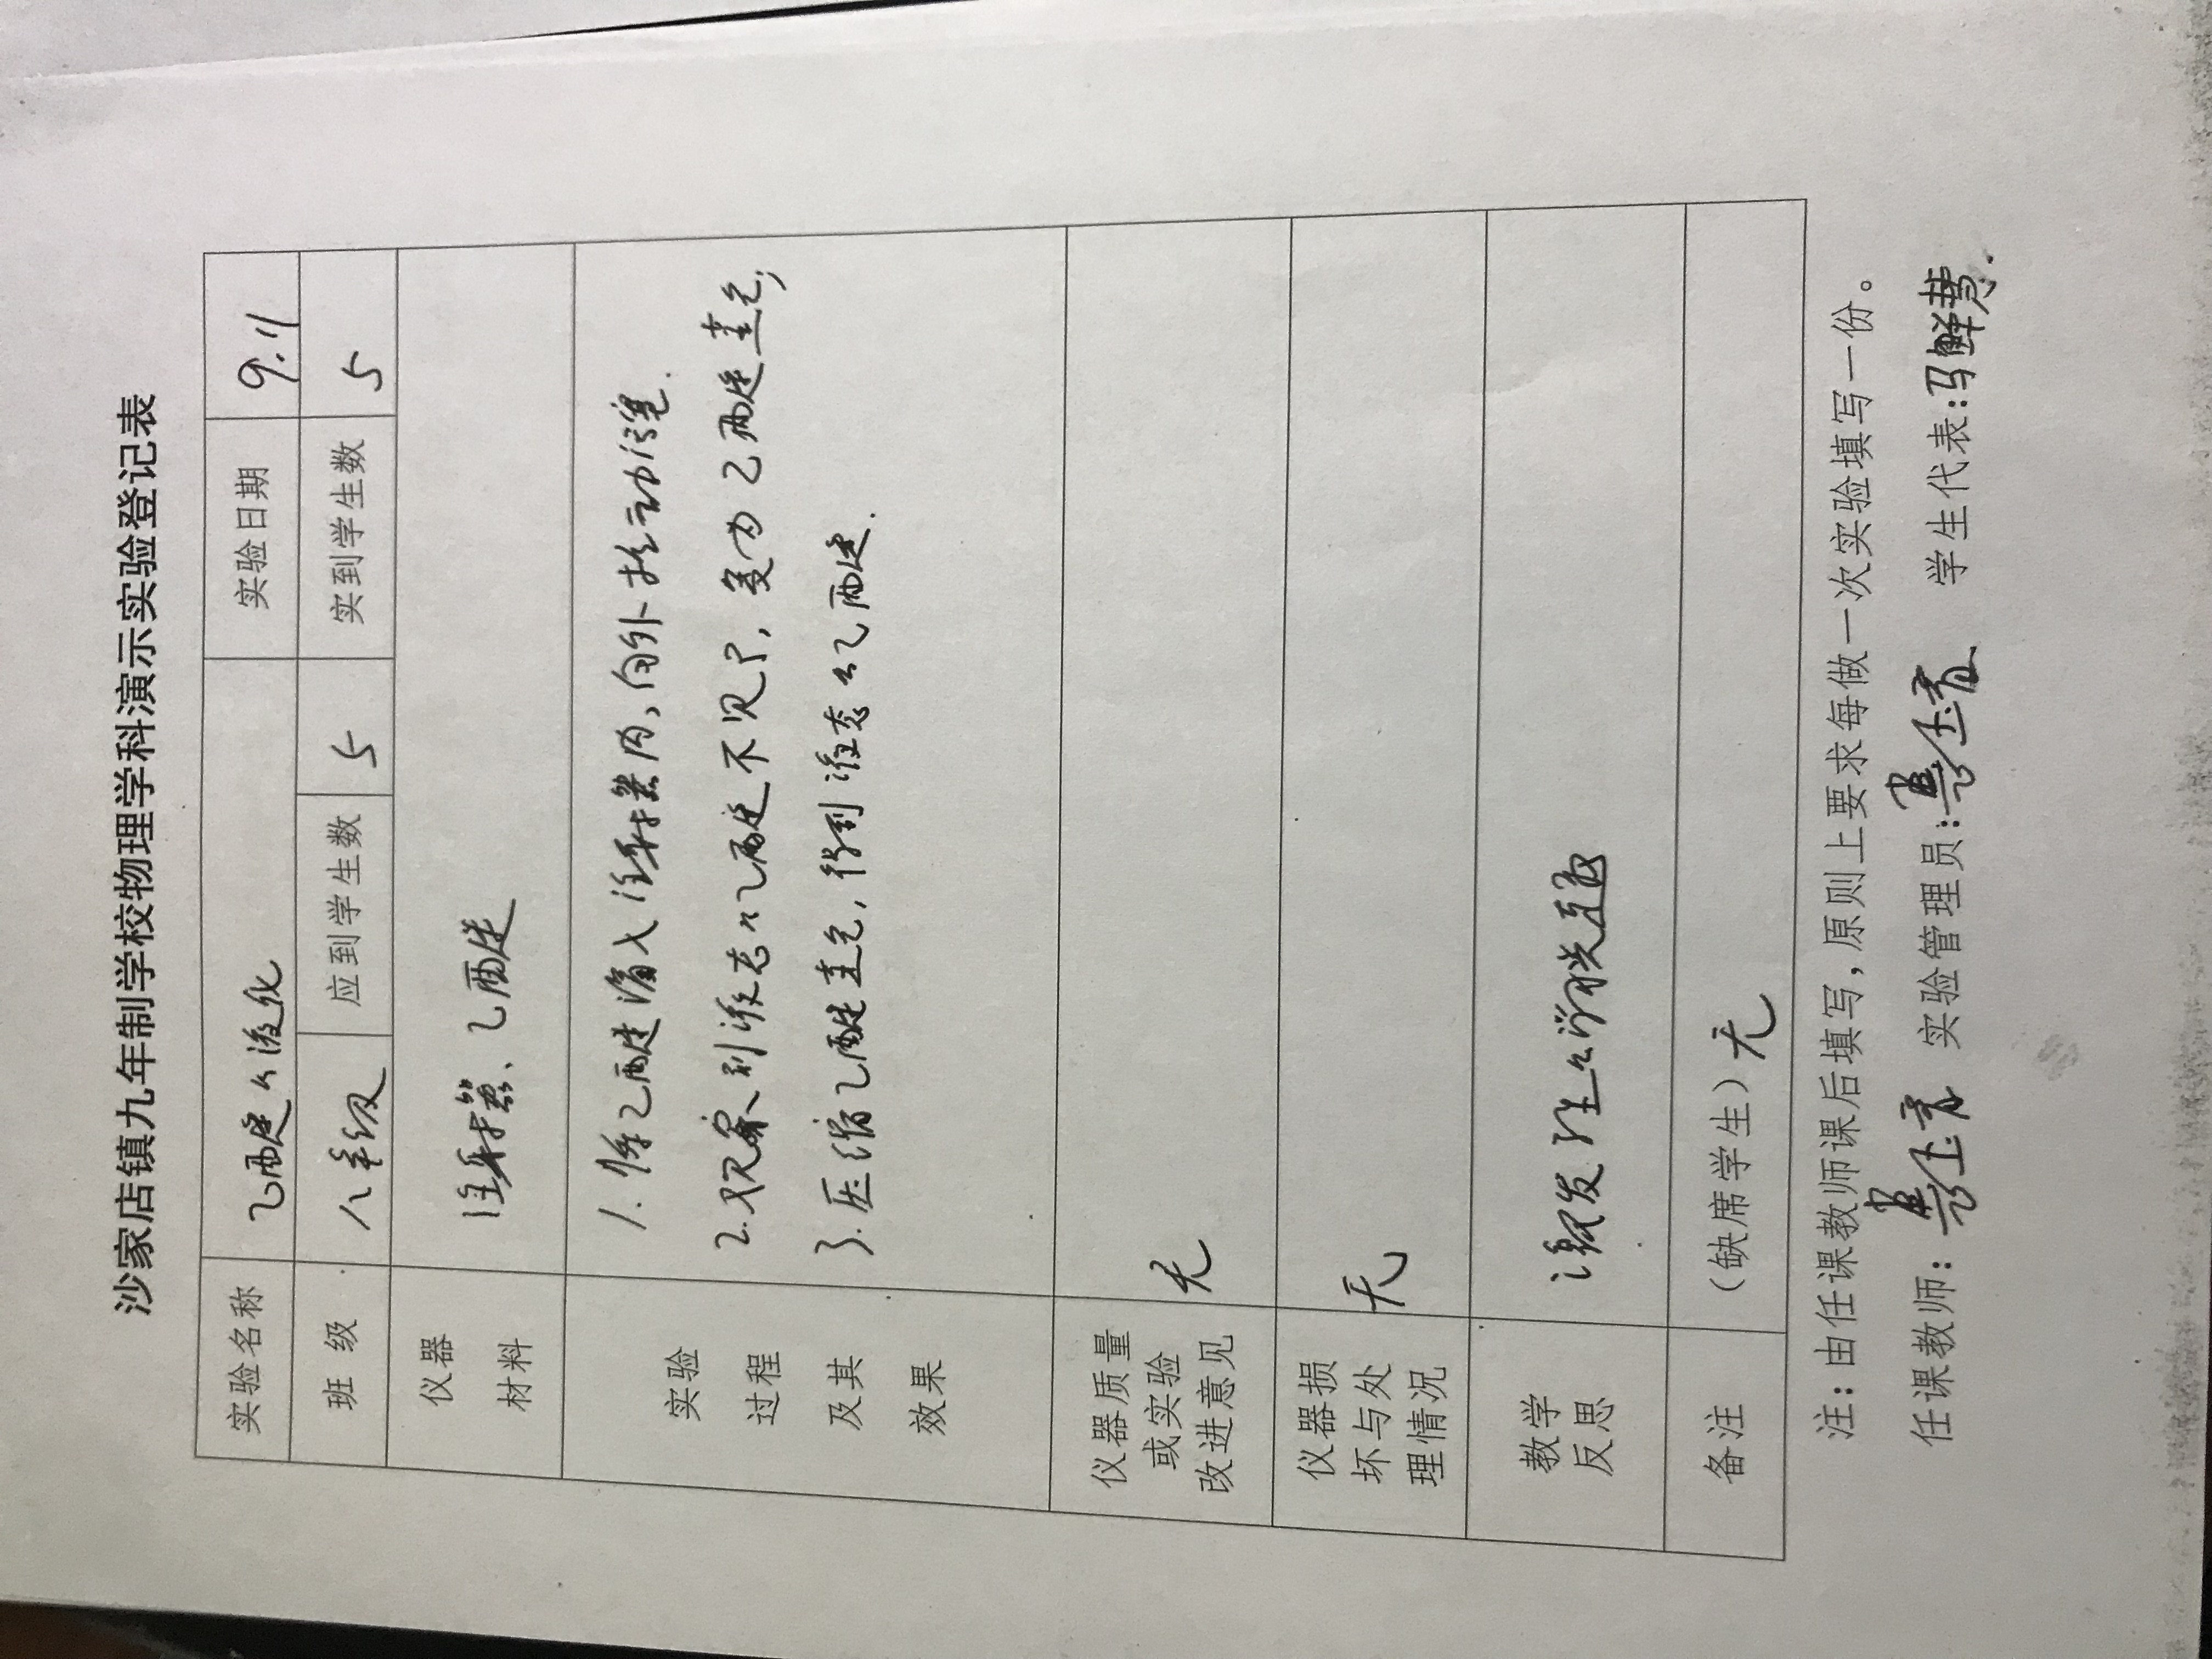 沙家店镇九年制学校物理学科演示实验登记表
实验名称 乙醚的液化 实验日期 9.11
班级 八年级 应到学生数 5 实到学生数 5
仪器
材料
注射器、乙醚
实验
过程
及其
效果
1.将乙醚滴入注射器内,向外拉动活塞.
2.观察到液态的乙醚不见了,变为乙醚蒸气;
3.压缩乙醚蒸气,得到液态的乙醚.
仪器质量
或实验
改进意见
无
仪器损
坏与处
理情况
无
教学
反思
激发学生的学习兴趣
备注 (缺席学生)无
注:由任课教师课后填写,原则上要求每做一次实验填写一份。
任课教师: 实验管理员: 学生代表:马